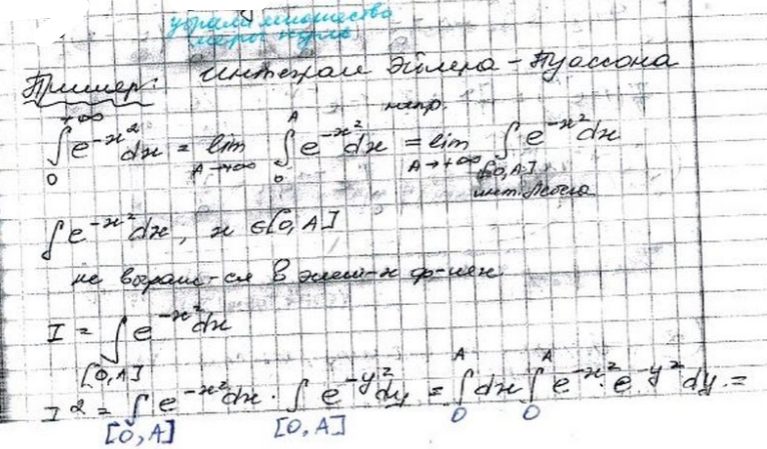 убрали множество
меры нуль
Пример: интеграл Эйлера – Пуассона
∫₀^{+∞} e^{-x²}dx = lim_{A→+∞} ∫₀^A e^{-x²}dx = lim_{A→+∞} ∫_{[0,A]} e^{-x²}dx
напр.
инт. Лебега
∫e^{-x²}dx, x ∈ [0,A]
не выраж-ся в элем-х ф-иях
I = ∫_{[0,A]} e^{-x²}dx
I² = ∫_{[0,A]} e^{-x²}dx · ∫_{[0,A]} e^{-y²}dy = ∫₀^A dx ∫₀^A e^{-x²}·e^{-y²}dy =